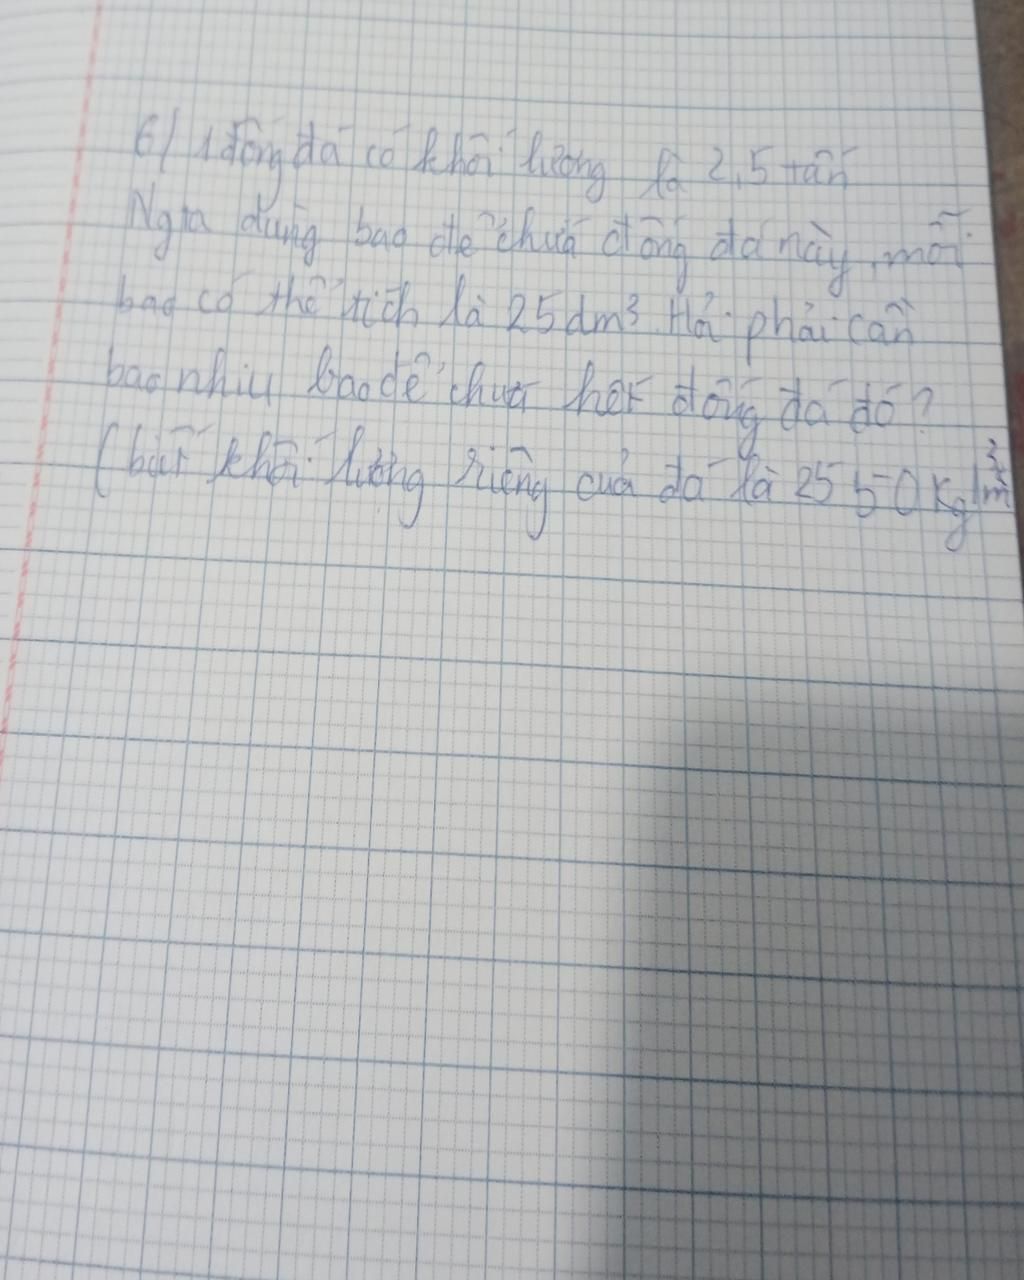 6/ 1 đống đá có khối lượng là 2,5 tấn
Ngta dùng bao để chứa đống đá này, mỗi
bao có thể tích là 25dm³. Hỏi phải cần
bao nhiu bao để chứa hết đống đá đó?
(biết khối lượng riêng của đá là 2550kg/m³